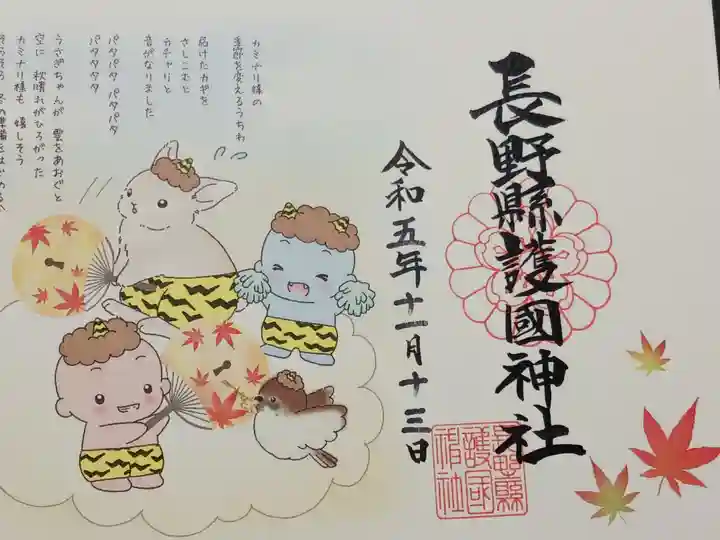 長野縣護國神社
令和五年十一月十三日
カミナリ様の
季節を変えるうちわ
届けたカギを
さしこむと
カチャリと
音がなりました
パタパタ パタパタ
パタタタタ
うさぎちゃんが 雲をあおぐと
空に 秋晴れがひろがった
カミナリ様も 嬉しそう
そろそろ 冬の準備をはじめるよ
長野縣
護国
神社